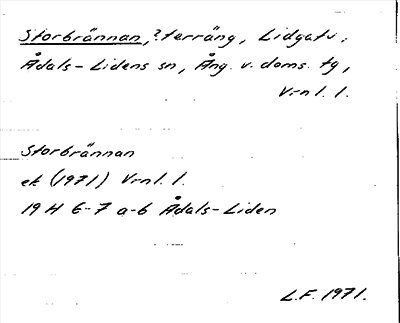 Storbrännan, ? terräng, Lidgatu,
Ådals-Lidens sn, Ång. v. doms. tg,
Vrnl. l.
Storbrännan
ek (1971) Vrnl. l.
19 H 6-7 a-b Ådals-Liden
L.F. 1971.